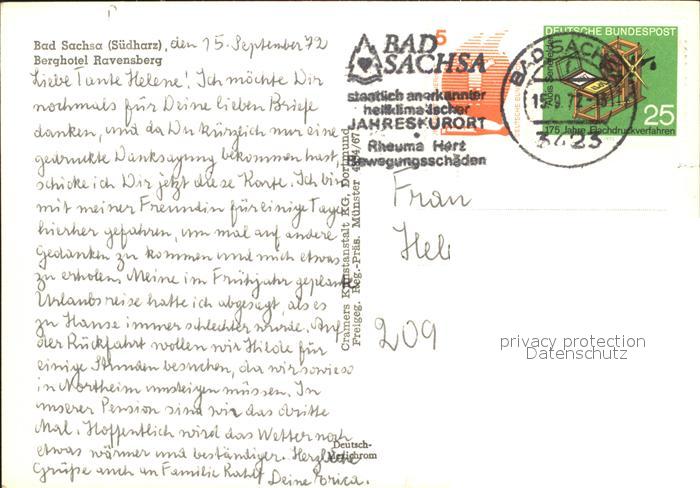 Bad Sachsa (Südharz), den 15. September 72
Berghotel Ravensberg
Liebe Tante Helene! Ich möchte Dir
nochmals für Deine lieben Briefe
danken, und da Du kürzlich nur eine
gedruckte Danksagung bekommen hast,
schicke ich Dir jetzt diese Karte. Ich bin
mit meiner Freundin für einige Tage
hierher gefahren, um mal auf andere
Gedanken zu kommen und mich etwas
zu erholen. Meine im Frühjahr geplante
Urlaubsreise hatte ich abgesagt, als es
zu Hause immer schlechter wurde. Auf
der Rückfahrt wollen wir Hilde für
einige Stunden besuchen, da wir sowieso
in Northeim umsteigen müssen. In
unserer Pension sind wir das dritte
Mal. Hoffentlich wird das Wetter noch
etwas wärmer und beständiger. Herzliche
Grüße auch an Familie
Deine Erica.
Deutsch-
Cramers Kunstanstalt KG, Dortmund
Freigeg. Reg.-Präs. Münster
5
BAD
SACHSA
staatlich anerkannter
heilklimatischer
JAHRESKURORT
Rheuma Herz
Bewegungsschäden
BAD SACHSA
15.9.72
3423
DEUTSCHE BUNDESPOST
Alois Senefelder
25
175 Jahre Flachdruckverfahren
Frau
Hel
209
privacy protection
Datenschutz